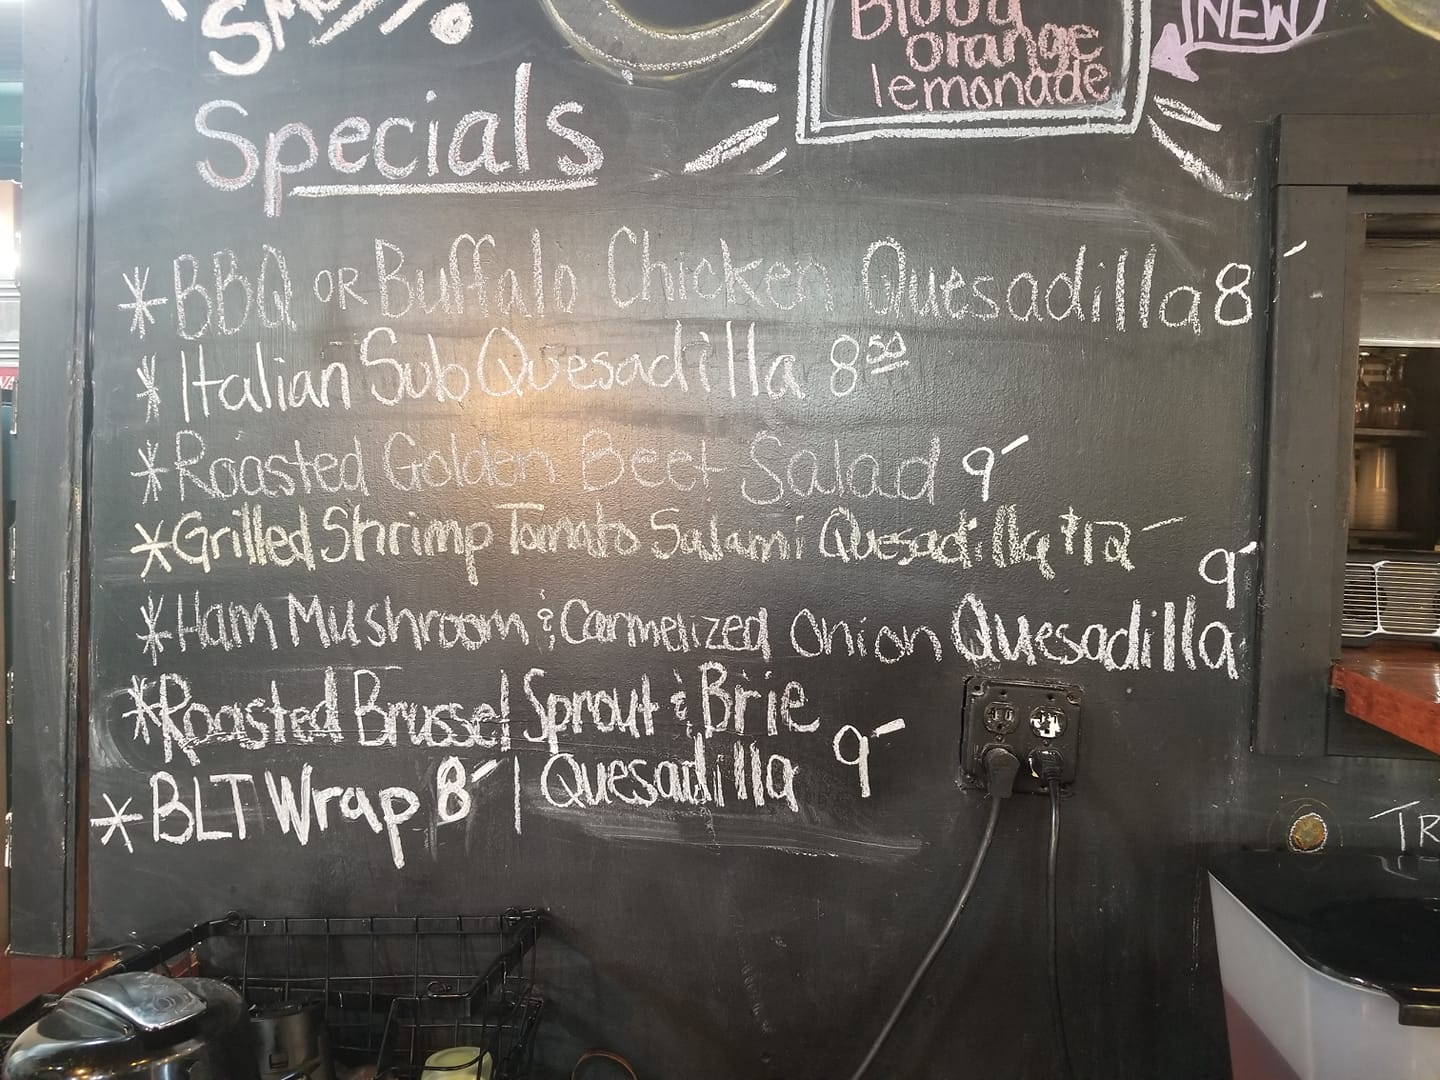 Specials
Blood
orange
lemonade
NEW
* BBQ OR Buffalo Chicken Quesadilla 8-
* Italian Sub Quesadilla 8 50
* Roasted Golden Beet Salad 9-
* Grilled Shrimp Tomato Salami Quesadilla $12-
* Ham Mushroom & Carmelized Onion Quesadilla 9-
* Roasted Brussel Sprout & Brie
Quesadilla 9-
* BLT Wrap 8-